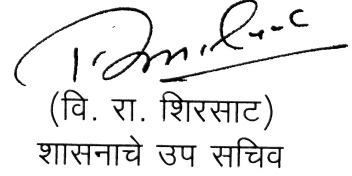 (वि. रा. शिरसाट)
शासनाचे उप सचिव